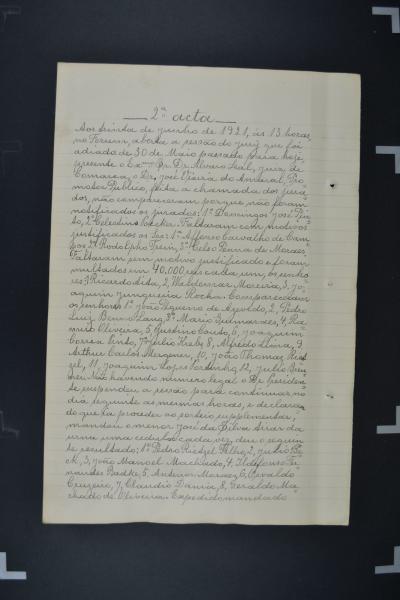 2ª acta
Aos trinta de junho de 1921, ás 13 horas,
no Forum, aberta a sessão do jury que foi
adiada de 30 de Maio passado para hoje,
presente o Exmo Sr. Dr. Alvaro Leal, juiz de
Comarca, o Dr. José Vieira do Amaral, Pro-
motor Publico, feita a chamada dos jura-
dos, não compareceram porque não foram
notificados os jurados: 1º Domingos José
to, 2 Celestino Faltaram com motivos
justificados os Snrs: 1º Affonso Carvalho de Cam-
pos 2º Rodolpho Trein, 3º Celso Penna de Moraes.
Faltaram sem motivo justificado e foram
multados em 40.000 reis cada um, os senho-
res: 1 Ricardo 2, Waldemar Moreira, 3, Jo-
aquim Junqueira Rocha. Compareceram
os senhores 1º João de Azevedo, 2, Pedro
Luiz 3º Mario Guimarães, 4, Ra-
miro Oliveira, 5, Justino Couto, 6, Joaquim
Correa Pinto, 7, Julio 8, Alfredo Lima, 9,
Arthur Carlos 10, João Thomaz
11, Joaquim Lopes 12, Julio
Não havendo numero legal o Dr. Presiden-
te suspendeu a sessão para continuar no
dia seguinte as mesmas horas, e declaran-
do que ia proceder ao sorteio supplementar,
mandou o menor José da Silva tirar da
urna uma cedula cada vez, deu o seguin-
te resultado: 1º Pedro Filho, 2, Julio
3, João Manoel Machado, 4, Ildefonso Fer-
nandes 5, Antenor Moraes, 6, Osvaldo
Cruzeiro, 7, Claudio 8, Geraldo Ma-
chado de Oliveira. Expedido mandado